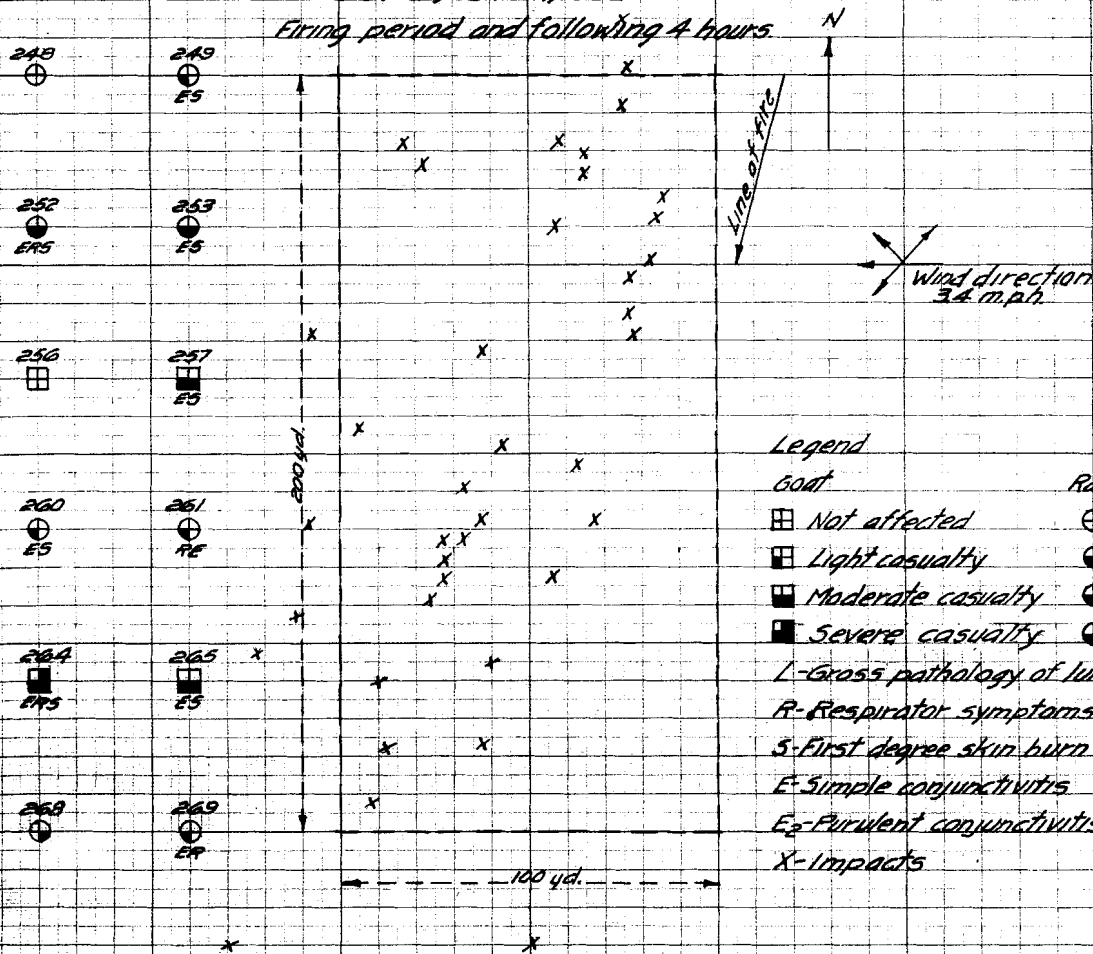 Firing period and following 4 hours
N
248 249
ES
Line of fire
252 253
ERS ES
Wind direction
3.4 m.p.h.
256 257
ES
200 yd.
260 261
ES RE
264 265
ERS ES
268 269
ER
100 yd.
Legend
Goat
Not affected
Light casualty
Moderate casualty
Severe casualty
L-Gross pathology of
R-Respirator symptoms
S-First degree skin burn
E-Simple conjunctivitis
E2-Purulent conjunctivitis
X-Impacts